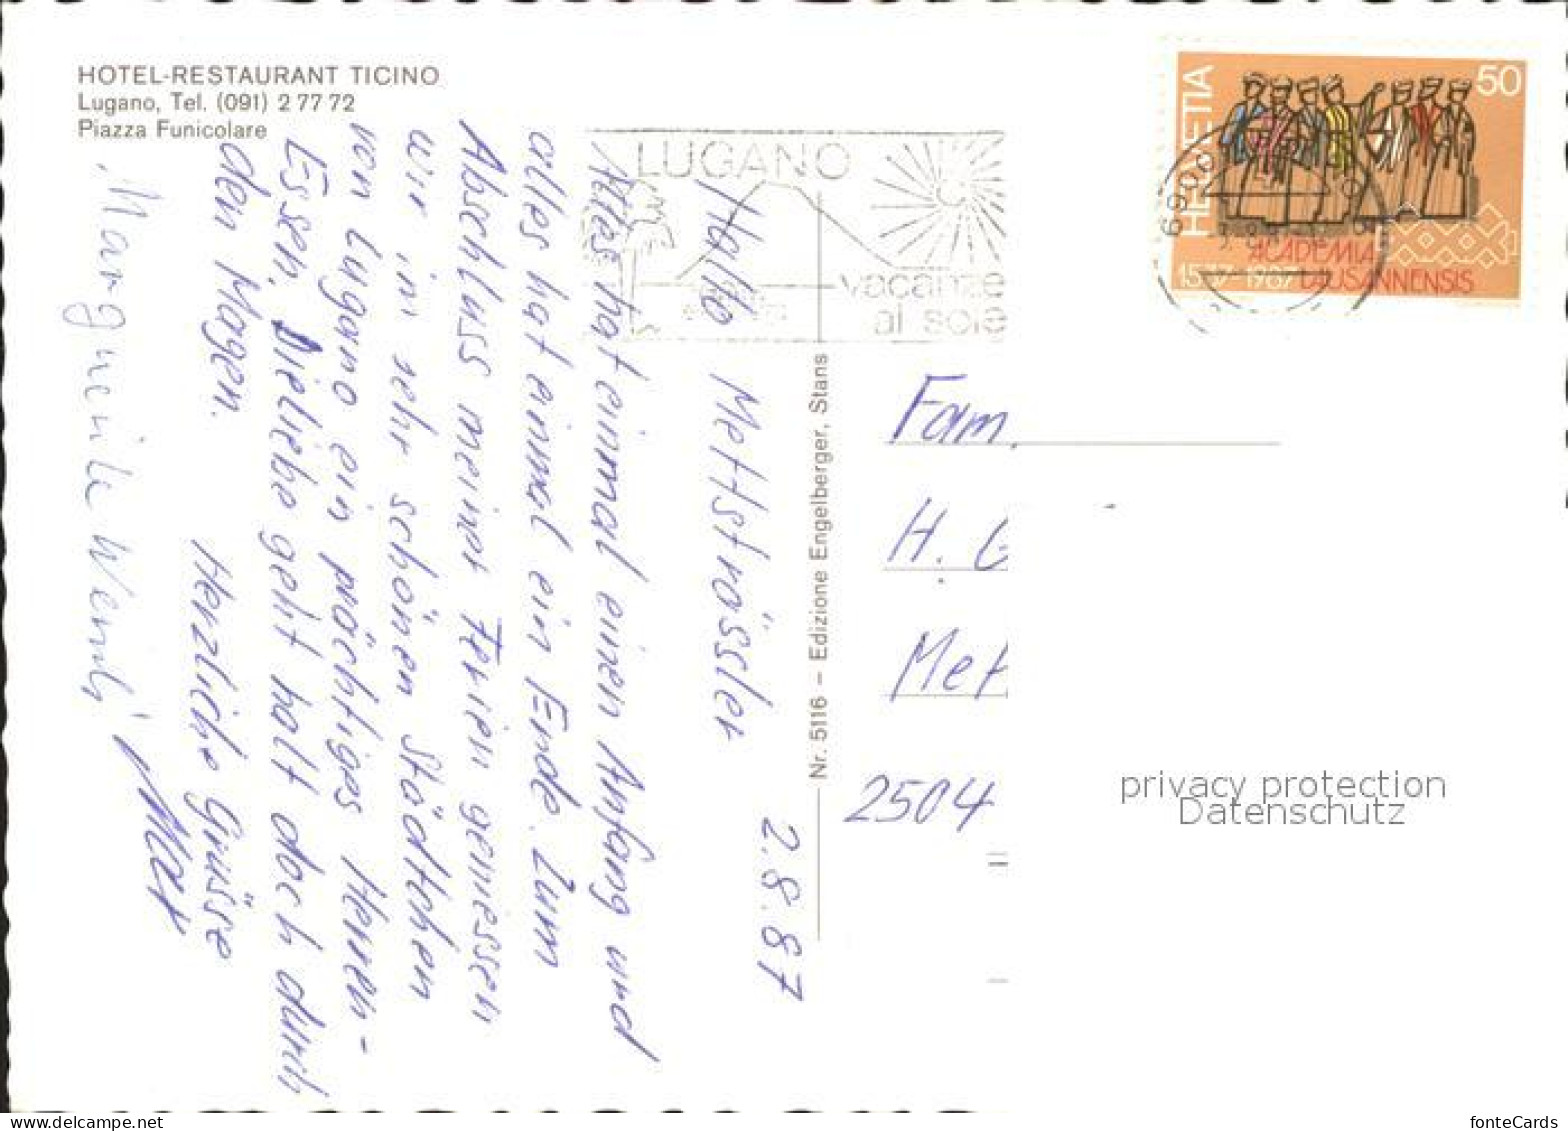 HOTEL-RESTAURANT TICINO
Lugano, Tel. (091) 2 77 72
Piazza Funicolare
LUGANO
vacanze
al sole
HELVETIA
50
ACADEMIA
LAUSANNENSIS
1537-1987
6900
2.8.87
Hallo Mettströssler
Alles hat einmal einen Anfang und
alles hat einmal ein Ende. Zum
Abschluss meiner Ferien geniessen
wir im sehr schönen Städtchen
von Lugano ein prächtiges Herren-
Essen. Die Liebe geht halt doch durch
den Magen.
Herzliche Grüsse
Max
Nr. 5116 – Edizione Engelberger, Stans
Fam.
H. G
Met
2504
privacy protection
Datenschutz
www.delcampe.net
fonteCards